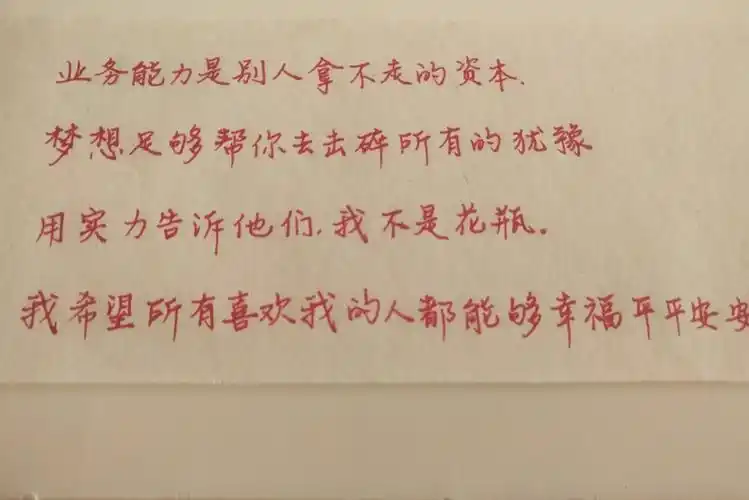 业务能力是别人拿不走的资本.
梦想足够帮你去击碎所有的犹豫
用实力告诉他们.我不是花瓶.
我希望所有喜欢我的人都能够幸福平平安安